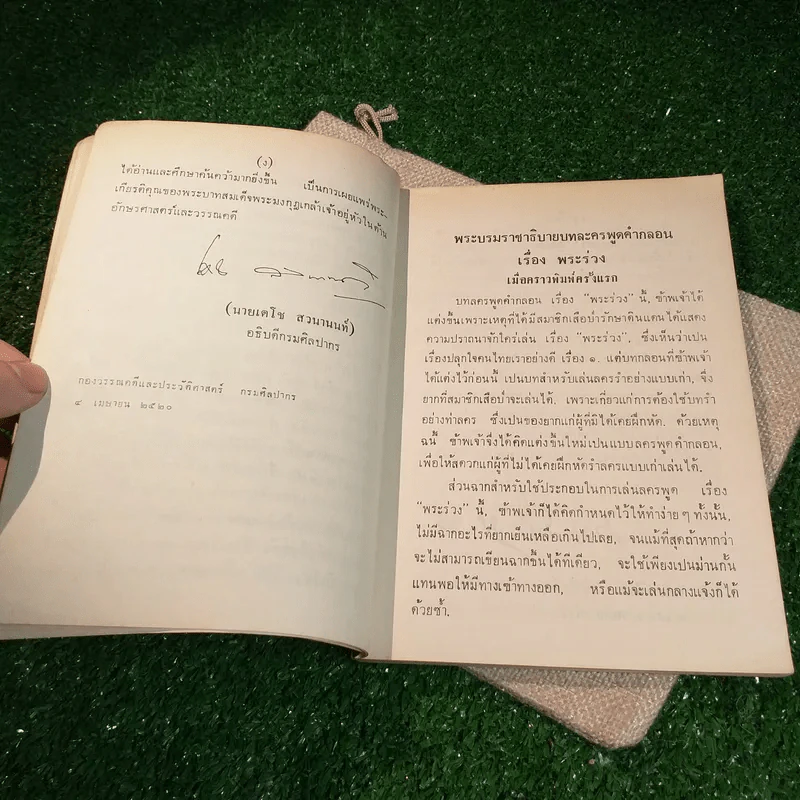 (ง)
ได้อ่านและศึกษาค้นคว้ามากยิ่งขึ้น เป็นการเผยแพร่พระ-
เกียรติคุณของพระบาทสมเด็จพระมงกุฎเกล้าเจ้าอยู่หัวในด้าน
อักษรศาสตร์และวรรณคดี
(นายเดโช สวนานนท์)
อธิบดีกรมศิลปากร
กองวรรณคดีและประวัติศาสตร์ กรมศิลปากร
๔ เมษายน ๒๕๒๐
พระบรมราชาธิบายบทละครพูดคำกลอน
เรื่อง พระร่วง
เมื่อคราวพิมพ์ครั้งแรก
บทลครพูดคำกลอน เรื่อง "พระร่วง" นี้, ข้าพเจ้าได้
แต่งขึ้นเพราะเหตุที่ได้มีสมาชิกเสือป่ารักษาดินแดนได้แสดง
ความปรารถนาจักใคร่เล่น เรื่อง "พระร่วง", ซึ่งเห็นว่าเปน
เรื่องปลุกใจคนไทยเราอย่างดี เรื่อง ๑. แต่บทกลอนที่ข้าพเจ้า
ได้แต่งไว้ก่อนนี้ เปนบทสำหรับเล่นลครรำอย่างแบบเก่า, จึ่ง
ยากที่สมาชิกเสือป่าจะเล่นได้. เพราะเกี่ยวแก่การต้องใช้บทรำ
อย่างท่าลคร ซึ่งเปนของยากแก่ผู้ที่มิได้เคยฝึกหัด. ด้วยเหตุ
ฉนี้ ข้าพเจ้าจึ่งได้คิดแต่งขึ้นใหม่เปนแบบลครพูดคำกลอน,
เพื่อให้สดวกแก่ผู้ที่ไม่ได้เคยฝึกหัดรำลครแบบเก่าเล่นได้.
ส่วนฉากสำหรับใช้ประกอบในการเล่นลครพูด เรื่อง
"พระร่วง" นี้, ข้าพเจ้าก็ได้คิดกำหนดไว้ให้ทำง่าย ๆ ทั้งนั้น,
ไม่มีฉากอะไรที่ยากเย็นเหลือเกินไปเลย, จนแม้ที่สุดถ้าหากว่า
จะไม่สามารถเขียนฉากขึ้นได้ทีเดียว, จะใช้เพียงเปนม่านกั้น
แทนพอให้มีทางเข้าทางออก, หรือแม้จะเล่นกลางแจ้งก็ได้
ด้วยซ้ำ.